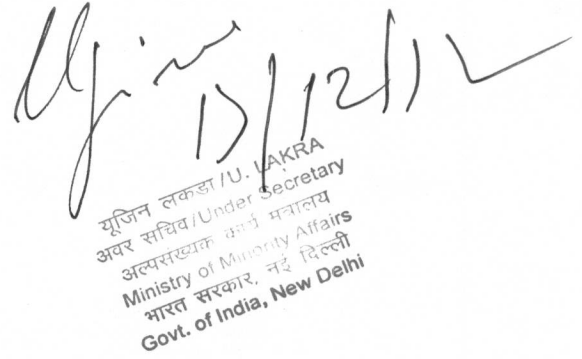 13/12/12
यूजिन लकडा/U. LAKRA
अवर सचिव/Under Secretary
अल्पसंख्यक कार्य मंत्रालय
Ministry of Minority Affairs
भारत सरकार, नई दिल्ली
Govt. of India, New Delhi